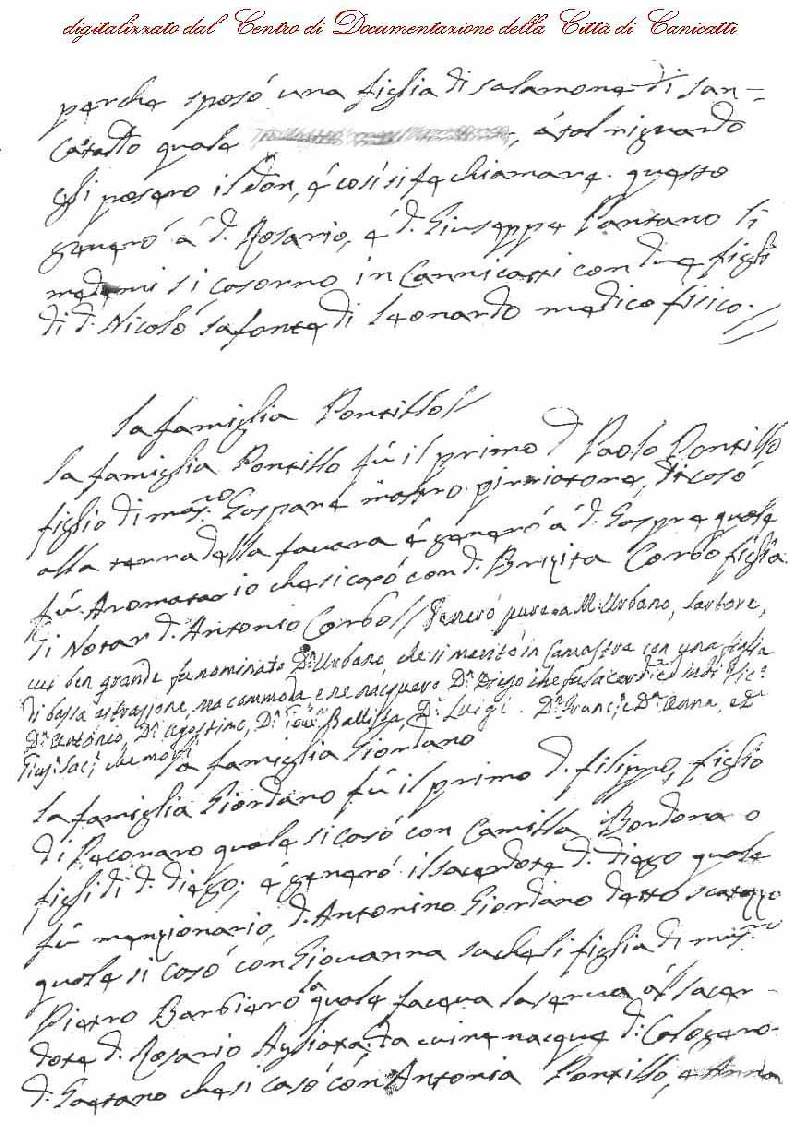 digitalizzato dal Centro di Documentazione della Città di Canicattì
perche sposó una figlia di salamone di san=
Cataldo quale , á tal riguardo
gli posero il don, é cosi si fe chiamare. questo
generó á d. Rosario, é d. Giuseppe Pantano li
medemi si casorno in Cannicatti con due figli
di d. Nicoló la fonte di Leonardo medico fisico.//
la famiglia Pontillo//
la famiglia Pontillo fú il primo d. Paolo Pontillo
figlio di mas.ro Gaspare mastro pirriatore, si casó
alla terra della favara é generó á d. Gaspre quale
fú Aromatario che si casó con d. Brigita Corbo figlia
di Notar d. Antonio Corbo// Generó pure a M. Urbano, sartore,
cui ben grande fu nominato D. Urbano, che si maritó in Camastra con una figlia
di bassa estrazione, ma commoda e ne nacquero D. Diego che fu sacerdote
D. Antonio, D. Agostino, D. Battista, D. Luigi. D.a Franc.a e D.a Anna, e
la famiglia Giordano
la famiglia Giordano fú il primo d. filippo, figlio
di Leonaro quale si casó con Camilla Bordona o
figli di d. diego; é generó il sacerdote d. diego quale
fú menzionario, d. Antonino Giordano detto scatozzo
quale si casó con Giovanna sacheli figlia di mas.ro
Pietro Barbiero la quale faceva la serva al sacer-
dote d. Rosario Agliata, da cui ne nacque d. Calogero
d. Gaetano che si casó con Antonia Pontillo, e Anna